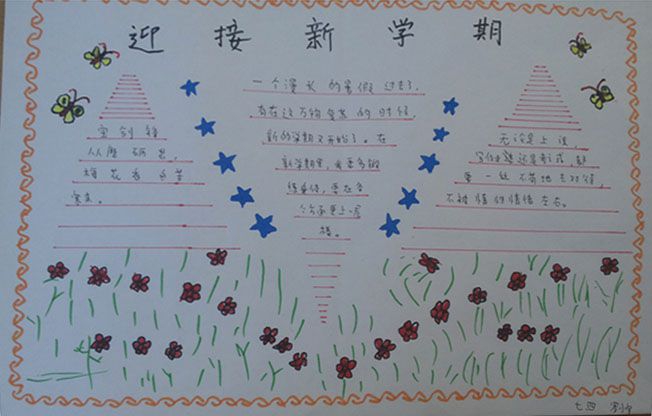 迎接新学期
宝剑锋
从磨砺出,
梅花香自苦
寒来。
一个漫长的暑假过去了,
在这万物复苏的时候,
新的学期又开始了。在
新学期里,我要多锻
炼身体,要在各
个方面更上一层
楼。
无论是上课,
写作业还是考试,都
要一丝不苟地去对待,
不被情绪左右。
七四